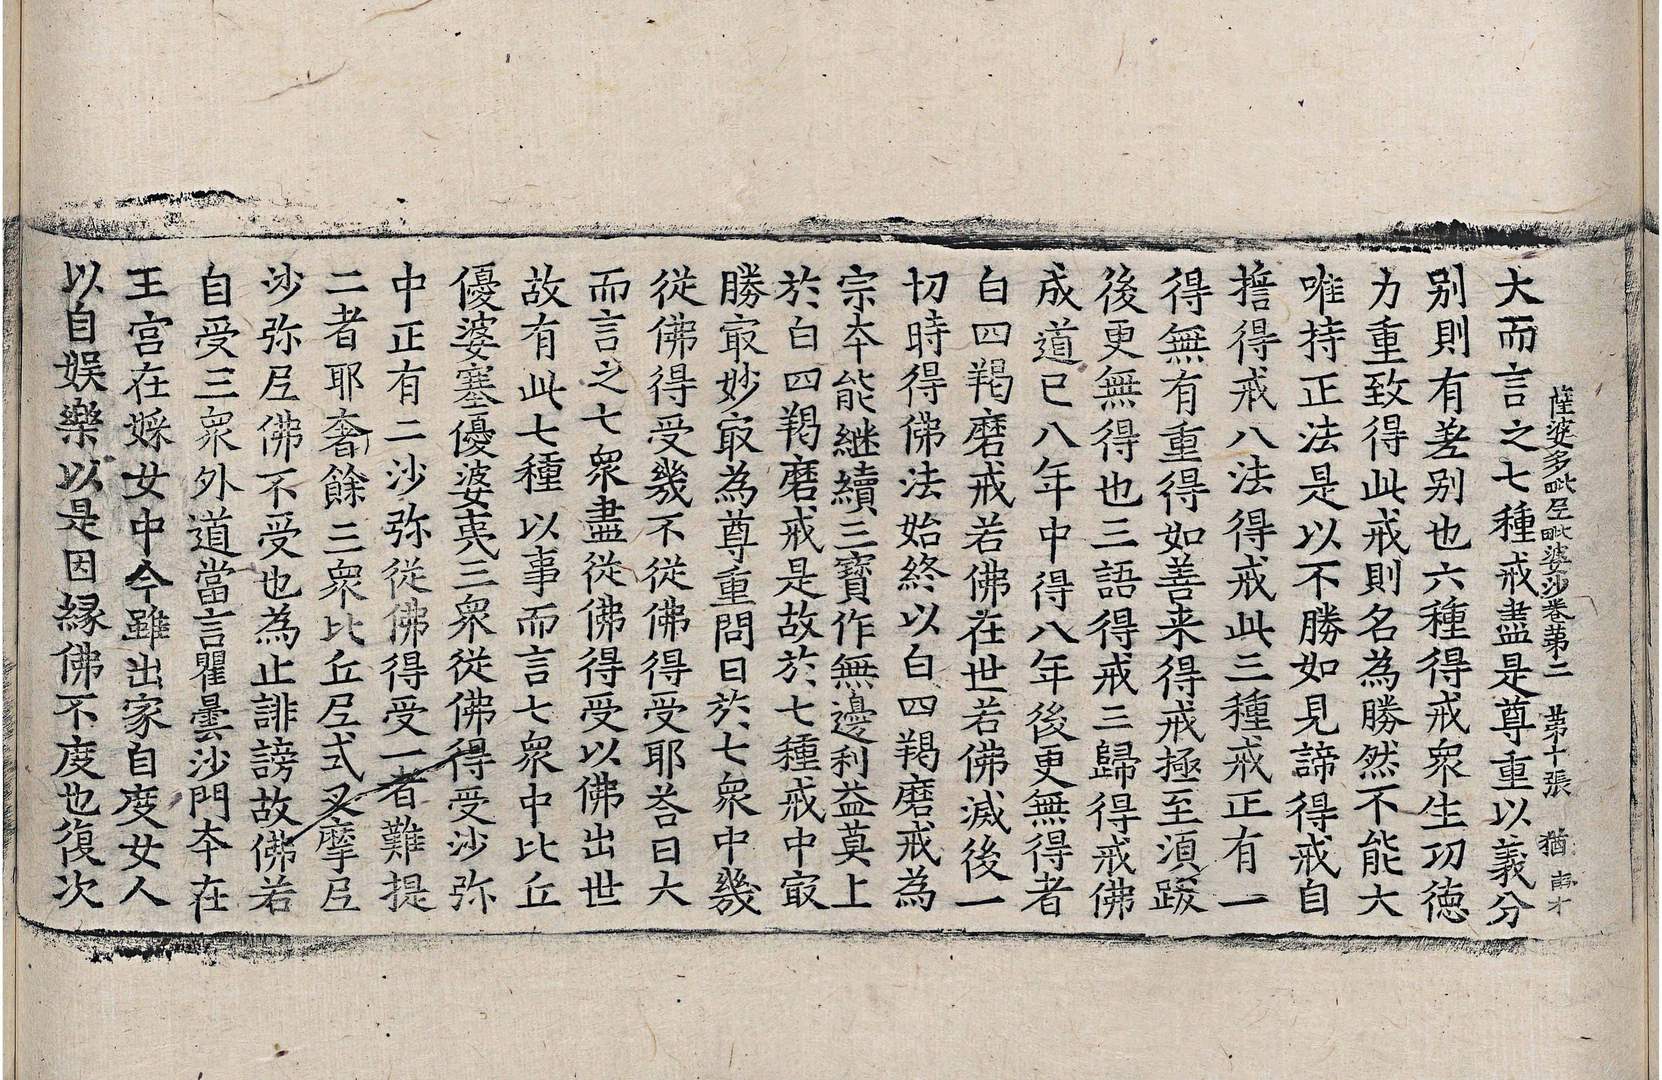 薩婆多毗尼毗婆沙卷苐二　苐十張　猶
大而言之七種戒盡是尊重以義分
别則有差别也六種得戒衆生功徳
力重致得此戒則名為勝然不能大
唯持正法是以不勝如見諦得戒自
誓得戒八法得戒此三種戒正有一
得無有重得如善来得戒極至湏跋
後更無得也三語得戒三歸得戒佛
成道已八年中得八年後更無得者
白四羯磨戒若佛在世若佛滅後一
切時得佛法始終以白四羯磨戒為
宗夲能継續三寶作無邊利益莫上
於白四羯磨戒是故於七種戒中㝡
勝㝡妙㝡為尊重問曰於七衆中幾
從佛得受幾不從佛得受耶荅曰大
而言之七衆盡從佛得受以佛出世
故有此七種以事而言七衆中比丘
優婆塞優婆夷三衆從佛得受沙弥
中正有二沙弥從佛得受一者難提
二者耶奢餘三衆比丘尼式叉摩尼
沙弥尼佛不受也為止誹謗故佛若
自受三衆外道當言瞿曇沙門夲在
王宫在婇女中今雖出家自度女人
以自娱樂以是因縁佛不度也復次